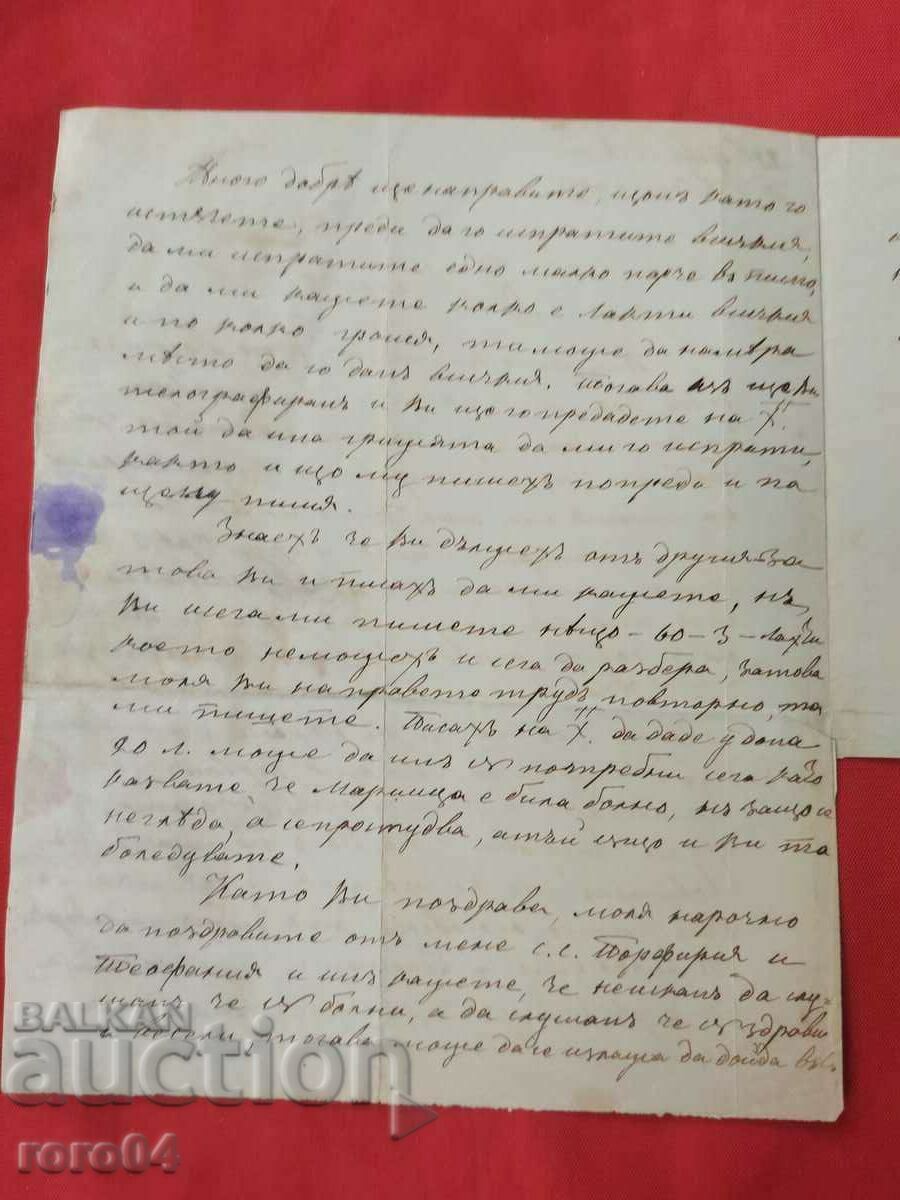 Много добрѣ ще направите, щомъ като го
истъчете, преди да го испратите всичкия,
да ми испратите едно малко парче въ писмо,
и да ми кажете колко е лакти всичкия
и по колко гроша, та може да намѣра
мѣсто да го дамъ всичкия. Тогава азъ ще Ви
телографирамъ и Ви ще го предадете на Х.
той да има грижята да ми го испрати,
както и що му пишехъ попреди и па
ще му пиша.
Знаехъ че Ви дължехъ отъ другия за
това Ви и писахъ да ми кажете, нъ
Ви сега ми пишете нѣщо - 60 - 3 -
което неможехъ и сега да разбера, затова
моля Ви направете трудъ повторно, та
ми пишете. Писахъ на Х. да даде у дома
20 л. може да имъ сѫ потребни сега като
казвате, че Марийца е била болно, нъ защо се
неглѣда, а се простудва, а тъй също и Ви та
боледувате.
Като Ви поздравя, моля нарочно
да поздравите отъ мене с.с. Порфирия и
Теофания и имъ кажете, че неискамъ да слу-
шамъ че сѫ болни, а да слушамъ че сѫ здрави
и весели, тогава може да се излъжа да дойда въ
BALKAN
auction
roro04